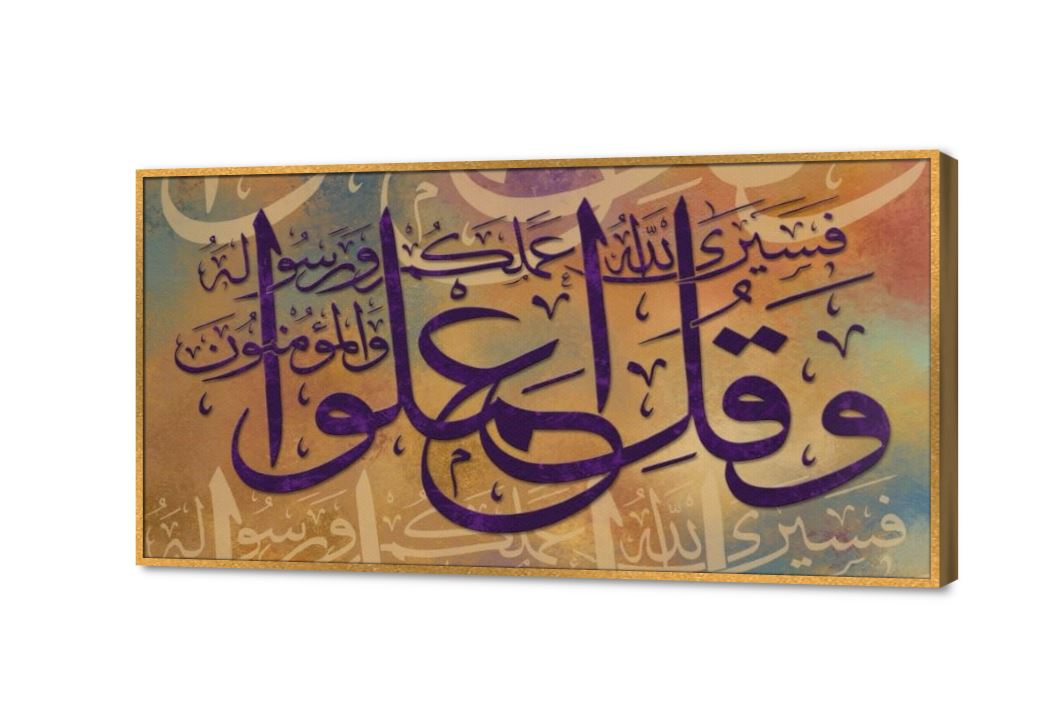 وَقُلِ اعْمَلُوا
فَسَيَرَى اللَّهُ عَمَلَكُمْ وَرَسُولُهُ
وَالْمُؤْمِنُونَ
فَسَيَرَى اللَّهُ عَمَلَكُمْ وَرَسُولُهُ